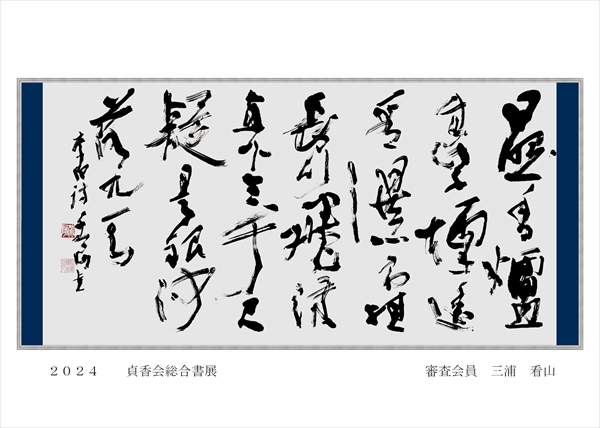 日照香爐
生紫煙遙
看瀑布挂
長川飛流
直下三千尺
疑是銀河
落九天
李白詩 看山
２０２４　貞香会総合書展
審査会員　三浦　看山